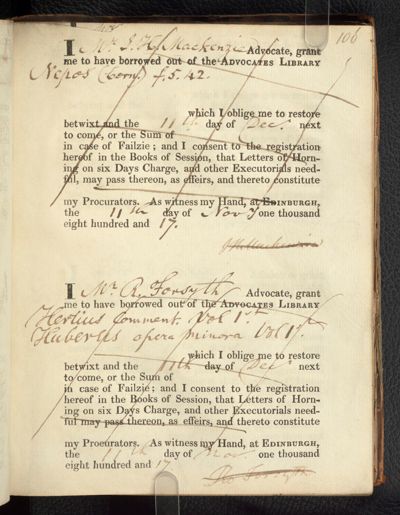 106
I Mr J. H. Mackenzie Advocate, grant
me to have borrowed out of the ADVOCATES LIBRARY
Nepos (Corn) f. 5. 42.
which I oblige me to restore
betwixt and the 11th day of Decr. next
to come, or the Sum of
in case of Failzie; and I consent to the registration
hereof in the Books of Session, that Letters of Horn-
ing on six Days Charge, and other Executorials need-
ful, may pass thereon, as effeirs, and thereto constitute
my Procurators. As witness my Hand, at EDINBURGH,
the 11th day of Novr one thousand
eight hundred and 17.
I Mr R. Forsyth Advocate, grant
me to have borrowed out of the ADVOCATES LIBRARY
Hertius Comment. Vol 1st.
Huberus opera minora Vol 1st.
which I oblige me to restore
betwixt and the 11th day of Decr next
to come, or the Sum of
in case of Failzie; and I consent to the registration
hereof in the Books of Session, that Letters of Horn-
ing on six Days Charge, and other Executorials need-
ful may pass thereon, as effeirs, and thereto constitute
my Procurators. As witness my Hand, at EDINBURGH,
the 11th day of Nov. one thousand
eight hundred and 17
Ro Forsyth